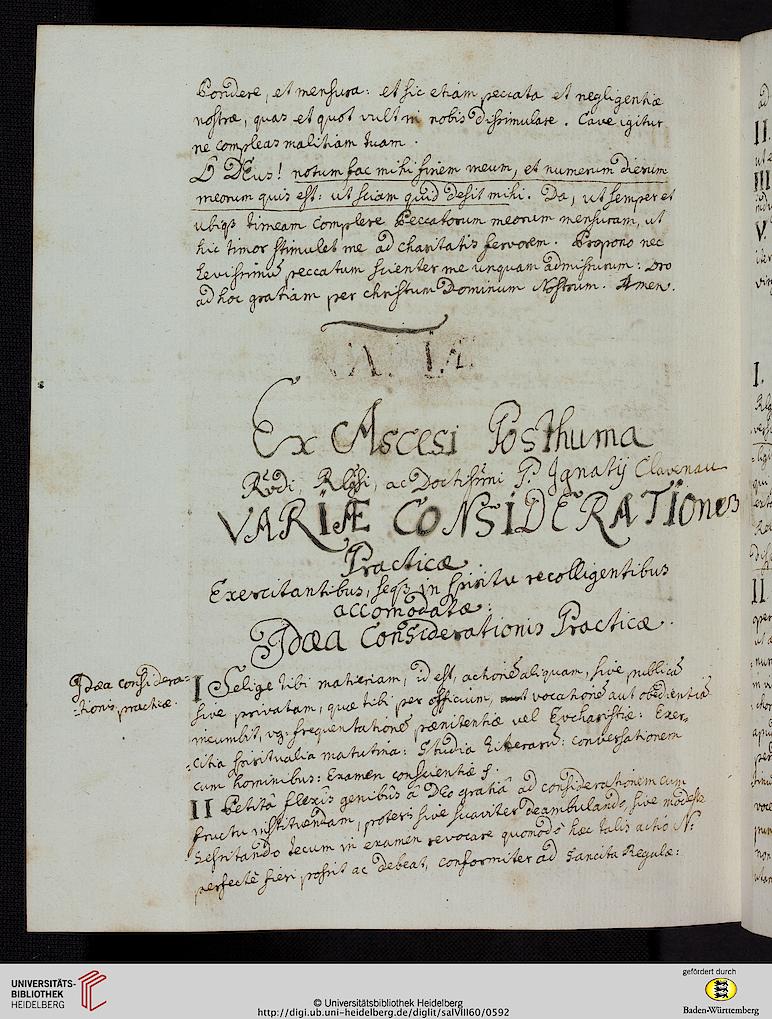 Pondere, et mensura: et sic etiam peccata et negligentiæ
nostræ, quas et quot vult in nobis dissimulare. Cave igitur
ne compleas malitiam tuam.
O DEus! notum fac mihi finem meum, et numerum dierum
meorum quis est: ut sciam quid desit mihi. Da, ut semper et
ubiqz timeam complere Peccatorum meorum mensuram, ut
hic timor stimulet me ad charitatis fervorem. Propono nec
levissimū peccatum scienter me unquam admissurum: Pro
ad hoc gratiam per Christum Dominum Nostrum. Amen.
Ex Ascesi Posthuma
Rdi, Rlgsi, ac Doctissimi P. Ignatij Clavenau
VARIÆ CONSIDERATIOnes
Practicæ
Exercitantibus, seqz in spiritu recolligentibus
accomodatæ:
Idæa Considerationis Practicæ.
Idæa considera=
=tionis practicæ.
I Selige tibi materiam, id est, actionē aliquam, sive publicā
sive privatam, quæ tibi per officium, vocationē aut obedientiā
incumbit, vg: frequentationē pænitentiæ vel Eucharistiæ: Exer=
=citia spiritualia matutina: Studia literarū: conversationem
cum hominibus: Examen conscientiæ
II Petitâ flexis genibus â DEo gratiâ ad considerationem cum
fructu instituendam, poteris sive suaviter deambulando, sive modestè
sessitando tecum in examen revocare quomodo hæc talis actio N:
perfectè fieri possit ac debeat, conformiter ad Sancita Regulæ:
UNIVERSITÄTS-
BIBLIOTHEK
HEIDELBERG
© Universitätsbibliothek Heidelberg
http://digi.ub.uni-heidelberg.de/diglit/salVIII60/0592
gefördert durch
Baden-Württemberg